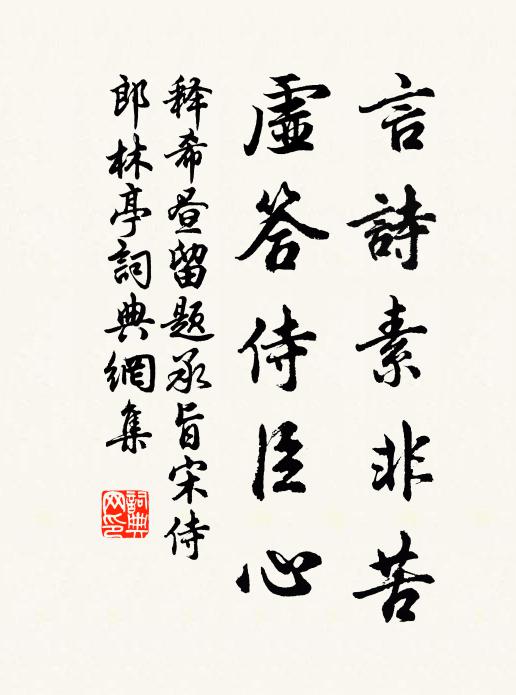 言詩素非苦
虛答侍臣心
释希昼留题承旨宋侍
郎林亭詞典網集
詞典网印